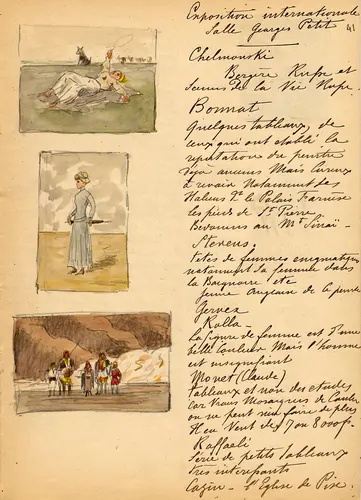 Exposition internationale
Salle Georges Petit 41
Chelmonski
Bergère Russe et
Scenes de la Vie Russe.
Bonnat
Quelques tableaux, de
ceux qui ont etabli la
reputation du peintre
deja anciens Mais curieux
a revoir Notamment les
Italiens de le Palais Farnèse
les pieds de St Pierre
Bedouins au Mt Sinaï
Stevens
têtes de femmes enigmatiques
notamment la femme dans
la Baignoire etc
Gervex
Rolla
La figure de femme est d'une
belle couleur Mais l'homme
est insignifiant
Monet (Claude)
tableaux et non des etudes
car Vrais Mosaïques de Couleurs
on ne peut rien faire de plus
Il en Vend de 7 ou 8000 f.
Raffaeli
Série de petits tableaux
Tres interessants
Cazin - l'Eglise de Pise.